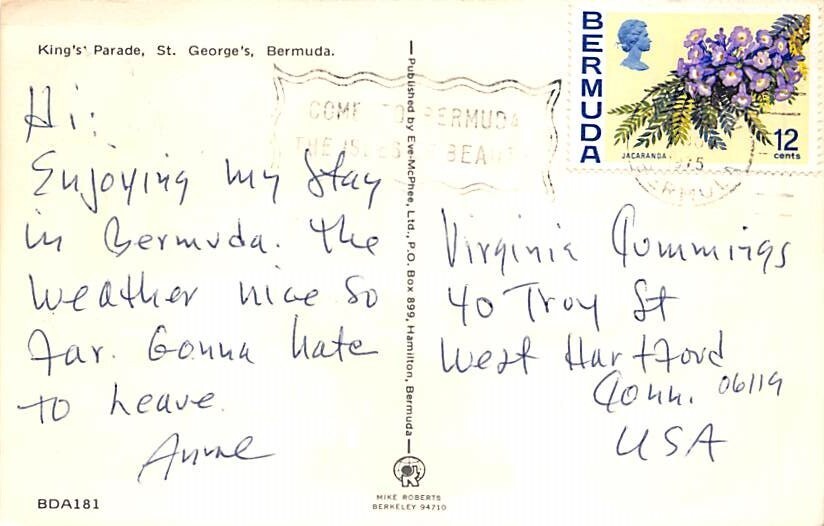 King's Parade, St. George's, Bermuda.
Hi:
Enjoying my stay
in Bermuda. The
weather nice so
far. Gonna hate
to leave.
Anne
BDA181
Published by Eve-McPhee, Ltd., P.O. Box 899, Hamilton, Bermuda
MIKE ROBERTS
BERKELEY 94710
COME TO BERMUDA
THE ISLES OF BEAUTY
BERMUDA
JACARANDA
12
cents
Virginia Cummings
40 Troy St
West Hartford
Conn. 06119
USA